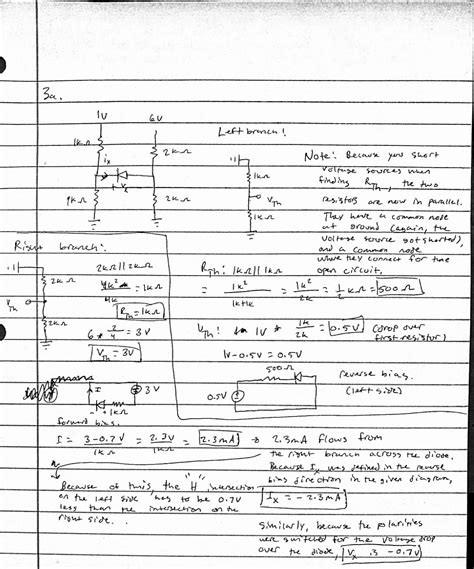 3a.
1V
6V
Left branch!
1kΩ
2kΩ
ix
+ Vx -
1kΩ
2kΩ
1V
1kΩ
Vth
1kΩ
Note: Because you short
voltage sources when
finding Rth, the two
resistors are now in parallel.
They have a common node
at ground (again, the
voltage source got shorted),
and a common node
where they connect for the
open circuit.
Right branch:
2kΩ
Vth
2kΩ
2kΩ || 2kΩ
4k²
4k
Rth = 1kΩ
6 *
= 3V
Vth = 3V
Rth: 1kΩ || 1kΩ
= 1k² / 1k+1k = 1k² / 2k = 1/2 kΩ = 500Ω
Vth: 1V * 1k / 2k = 0.5V (drop over
first resistor)
1V-0.5V = 0.5V
500Ω
0.5V
reverse bias.
(left side)
I
3V
1kΩ
forward bias.
I = 3-0.7V / 1kΩ = 2.3V / 1kΩ = 2.3mA
2.3mA flows from
the right branch across the diode.
Because Ix was defined in the reverse
bias direction in the given diagram,
Ix = -2.3mA
Because of this, the "H" intersection
on the left side has to be 0.7V
less than the intersection on the
right side.
Similarly, because the polarities
were switched for the voltage drop
over the diode, Vx -0.7V